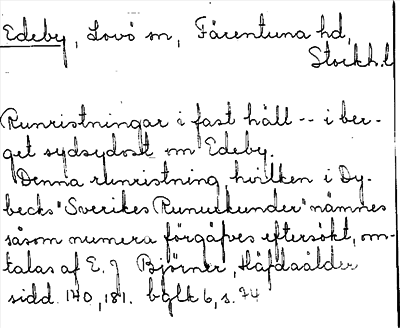 Edeby, Lovö sn, Färentuna hd,
Stockh.l
Runristningar i fast häll -- i ber-
get sydsydost om Edeby.
Denna runristning, hvilken i Dy-
becks "Sverikes Runurkunder" nämnes
såsom numera förgäfves eftersökt, om-
talas af E. J Björner, Häfdaålder
sidd. 170, 181. bglk 6, s. 74